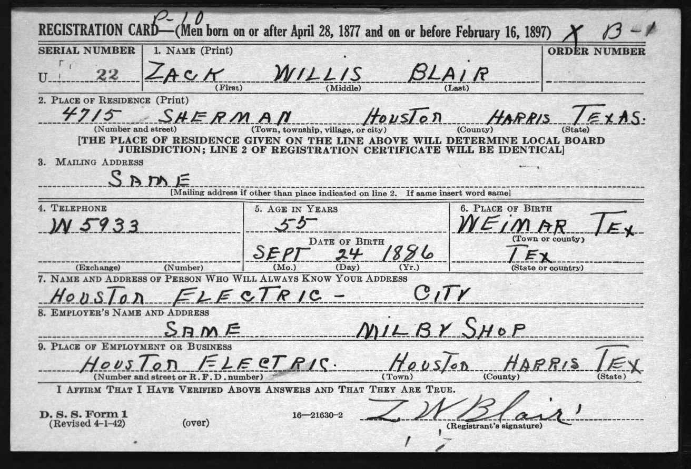 P-10
REGISTRATION CARD—(Men born on or after April 28, 1877 and on or before February 16, 1897) X B-1
SERIAL NUMBER 1. NAME (Print) ORDER NUMBER
U 22 ZACK WILLIS BLAIR
(First) (Middle) (Last)
2. PLACE OF RESIDENCE (Print)
4715 SHERMAN HOUSTON HARRIS TEXAS.
(Number and street) (Town, township, village, or city) (County) (State)
[THE PLACE OF RESIDENCE GIVEN ON THE LINE ABOVE WILL DETERMINE LOCAL BOARD
JURISDICTION; LINE 2 OF REGISTRATION CERTIFICATE WILL BE IDENTICAL]
3. MAILING ADDRESS
SAME
[Mailing address if other than place indicated on line 2. If same insert word same]
4. TELEPHONE 5. AGE IN YEARS 6. PLACE OF BIRTH
W 5933 55 WEIMAR TEX
DATE OF BIRTH (Town or county)
SEPT 24 1886 TEX
(Exchange) (Number) (Mo.) (Day) (Yr.) (State or country)
7. NAME AND ADDRESS OF PERSON WHO WILL ALWAYS KNOW YOUR ADDRESS
HOUSTON ELECTRIC - CITY
8. EMPLOYER'S NAME AND ADDRESS
SAME MILBY SHOP
9. PLACE OF EMPLOYMENT OR BUSINESS
HOUSTON ELECTRIC. HOUSTON HARRIS TEX
(Number and street or R. F. D. number) (Town) (County) (State)
I AFFIRM THAT I HAVE VERIFIED ABOVE ANSWERS AND THAT THEY ARE TRUE.
D. S. S. Form 1
(Revised 4-1-42) (over) 16—21630-2 Z W Blair
(Registrant's signature)